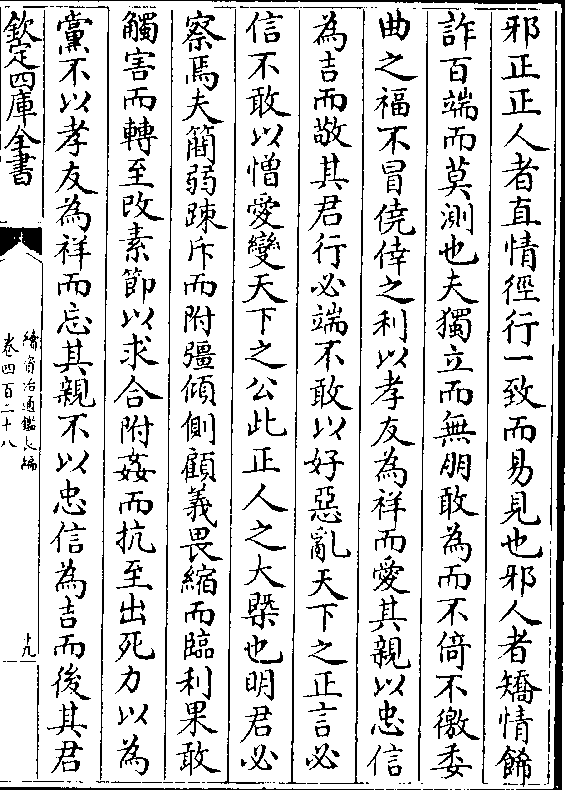 邪正正人者直情徑行一致而易見也邪人者矯情餙
詐百端而莫測也夫獨立而無朋敢為而不倚不徼委
曲之福不冒僥倖之利以孝友為祥而愛其親以忠信
為吉而敬其君行必端不敢以好惡亂天下之正言必
信不敢以憎愛變天下之公此正人之大槩也明君必
察焉夫簡弱踈斥而附彊傾側顧義畏縮而臨利果敢
觸害而轉至改素節以求合附姦而抗至出死力以為
黨不以孝友為祥而忘其親不以忠信為吉而後其君
欽定四庫全書
續資治通鑑長編
卷四百二十八
十九